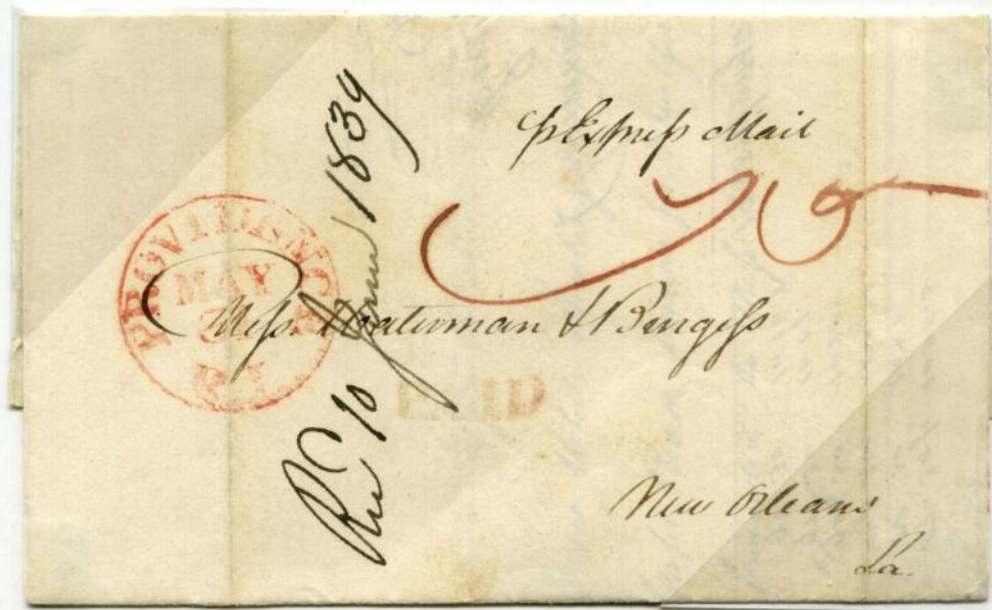 p Express Mail
75
PROVIDENCE
MAY
R.I.
Mess. Waterman & Burgess
PAID
New Orleans
La.
Rec 10 June 1839